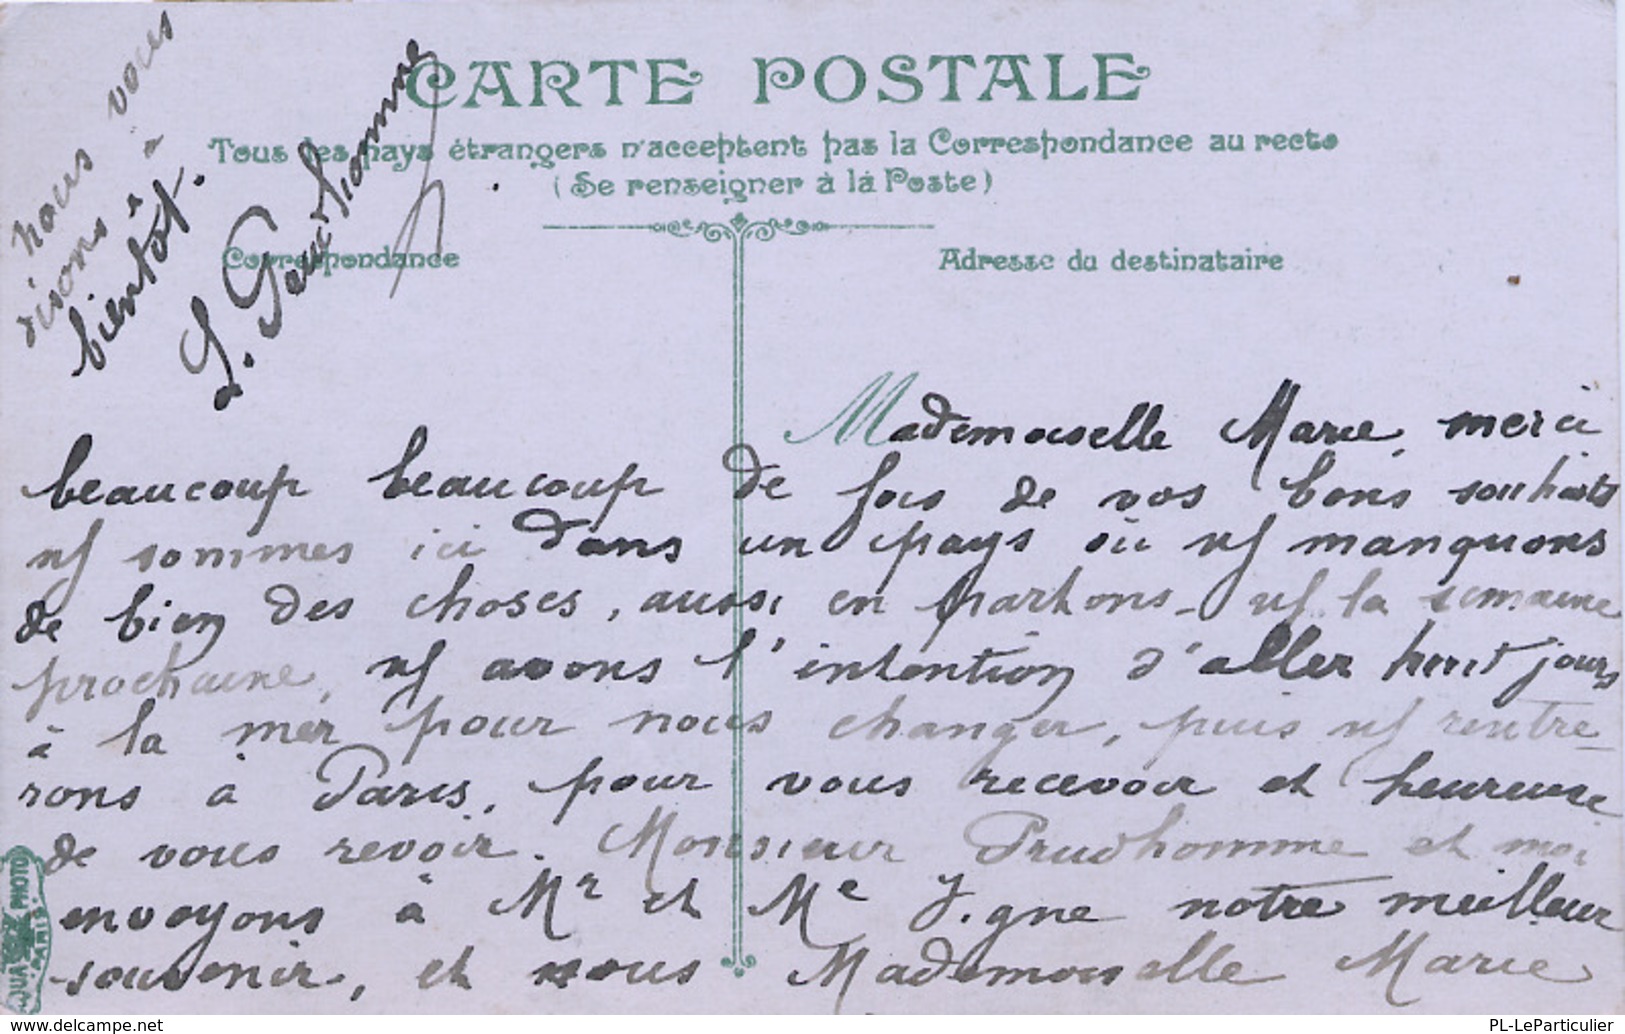 CARTE POSTALE
Tous les pays étrangers n'acceptent pas la Correspondance au recto
(Se renseigner à la Poste)
Correspondance
Adresse du destinataire
Mademoiselle Marie, merci
beaucoup beaucoup de fois de vos bons souhaits
ns sommes ici dans un pays où ns manquons
de bien des choses, aussi en partons-ns la semaine
prochaine, ns avons l'intention d'aller huit jours
à la mer pour nous changer, puis ns rentre-
rons à Paris, pour vous recevoir et heureuse
de vous revoir. Monsieur Prudhomme et moi
envoyons à Mr et Me notre meilleur
souvenir, et nous Mademoiselle Marie
nous vous
disons à
bientôt.
L. Prudhomme
PHOTO
PARIS
www.delcampe.net
PL-LeParticulier